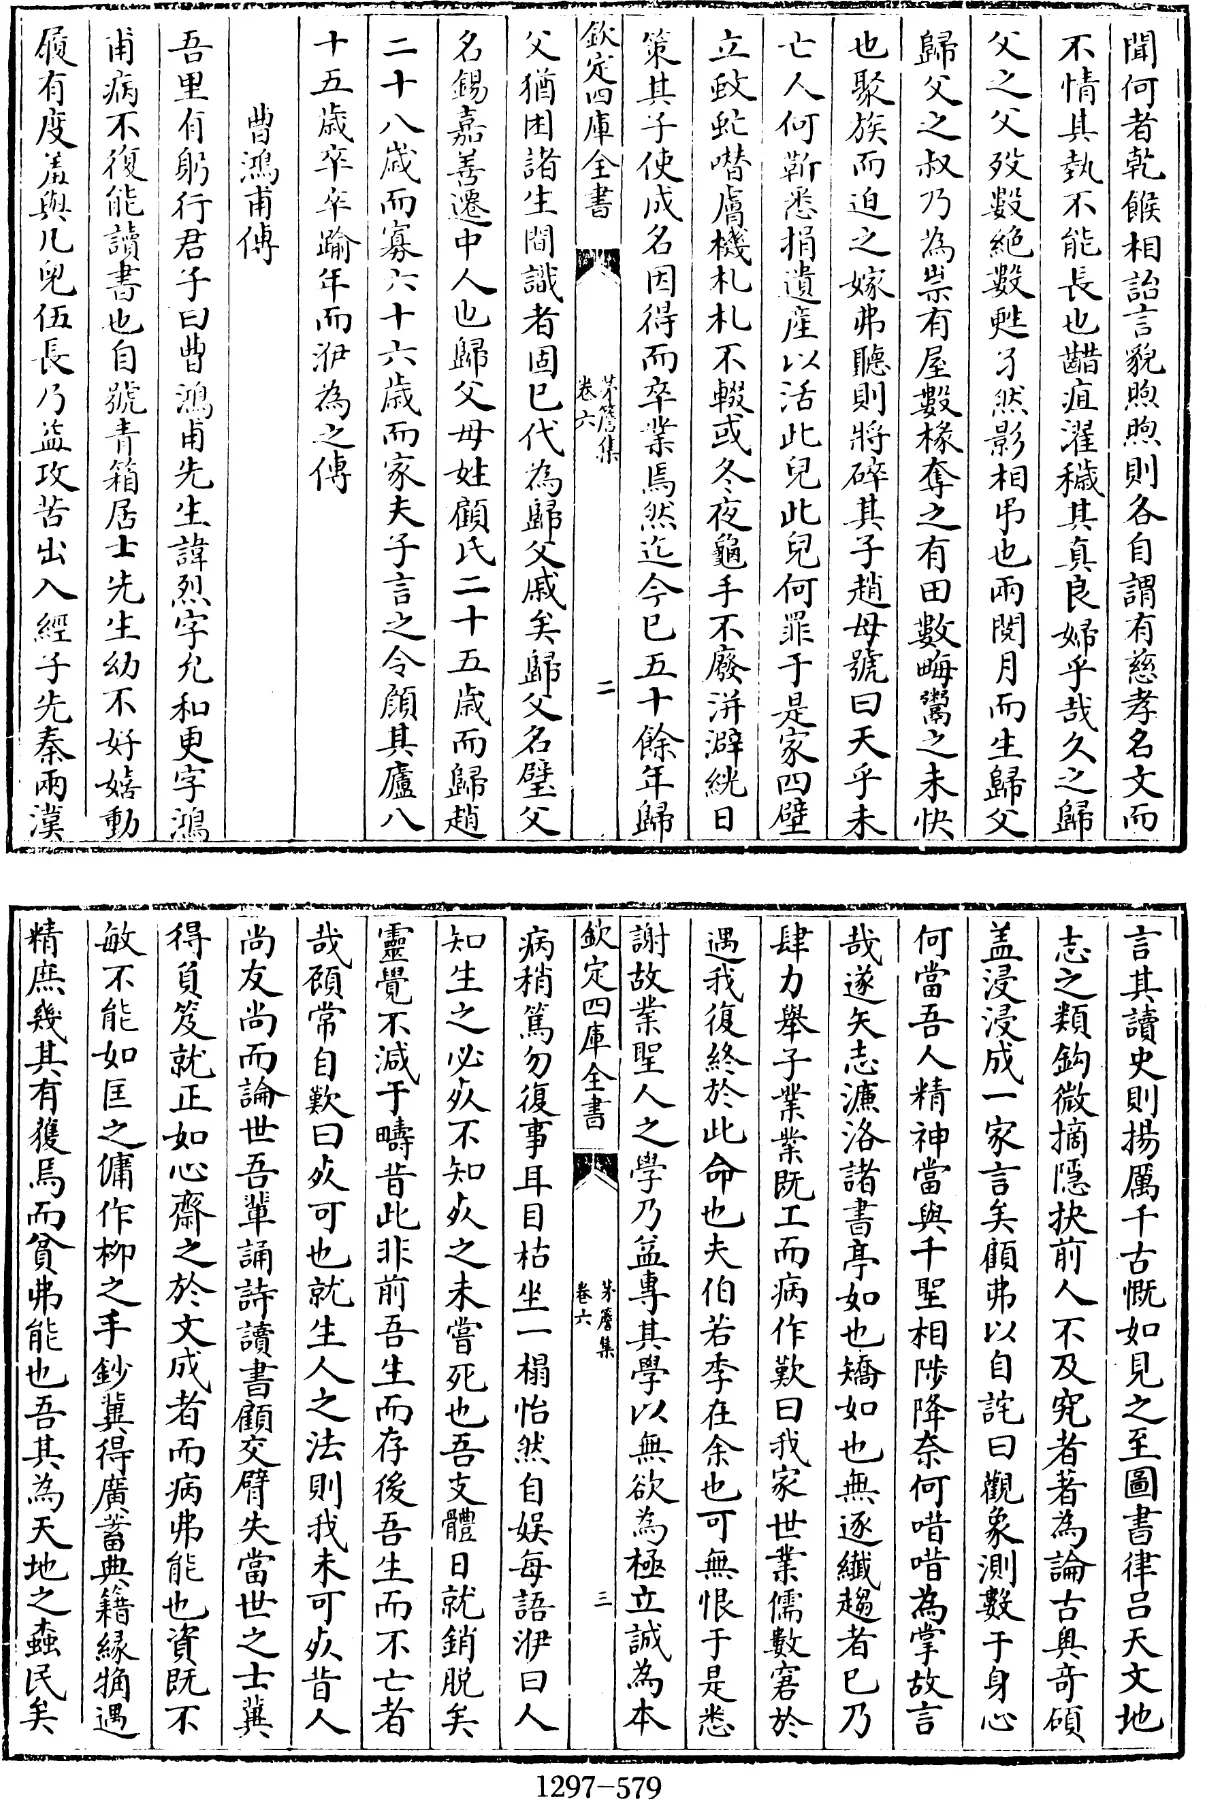 聞何者乾餱相詒言貌煦煦則各自謂有慈孝名文而
不情其埶不能長也齰疽濯穢其真良婦乎哉久之歸
父之父歿數絶數甦孑然影相弔也兩閱月而生歸父
歸父之叔乃為祟有屋數椽奪之有田數畮鬻之未快
也聚族而迫之嫁弗聽則將碎其子趙母號曰天乎未
亡人何靳悉捐遺産以活此兒此兒何罪于是家四壁
立蚊虻噆膚機札札不輟或冬夜龜手不廢洴澼絖日
策其子使成名因得而卒業焉然迄今已五十餘年歸
欽定四庫全書
茅簷集
卷六
二
父猶困諸生間識者固已代為歸父戚矣歸父名璧父
名錫嘉善遷中人也歸父母姓顧氏二十五歲而歸趙
二十八歲而寡六十六歲而家夫子言之令顔其廬八
十五歲卒卒踰年而洢為之傳
曹鴻甫傳
吾里有躬行君子曰曹鴻甫先生諱烈字允和更字鴻
甫病不復能讀書也自號青箱居士先生幼不好嬉動
履有度羞與凡兒伍長乃益攻苦出入經子先秦兩漢
言其讀史則揚厲千古慨如見之至圖書律吕天文地
志之類鈎微摘隱抉前人不及究者著為論古奥奇碩
盖浸浸成一家言矣顧弗以自詫曰觀象測數于身心
何當吾人精神當與千聖相陟降奈何唶唶為掌故言
哉遂矢志濂洛諸書亭如也矯如也無逐纖趨者已乃
肆力舉子業業既工而病作歎曰我家世業儒數窘於
遇我復終於此命也夫伯若季在余也可無恨于是悉
謝故業聖人之學乃益專其學以無欲為極立誠為本
欽定四庫全書
茅簷集
卷六
三
病稍篤勿復事耳目枯坐一榻怡然自娱每語洢曰人
知生之必㱙不知㱙之未嘗死也吾支體日就銷脱矣
靈覺不減于疇昔此非前吾生而存後吾生而不亡者
哉頋常自歎曰㱙可也就生人之法則我未可㱙昔人
尚友尚而論世吾輩誦詩讀書顧交臂失當世之士冀
得負笈就正如心齋之於文成者而病弗能也資既不
敏不能如匡之傭作柳之手鈔冀得廣蓄典籍緣觕遇
精庶幾其有獲焉而貧弗能也吾其為天地之蟊民矣
1297-579